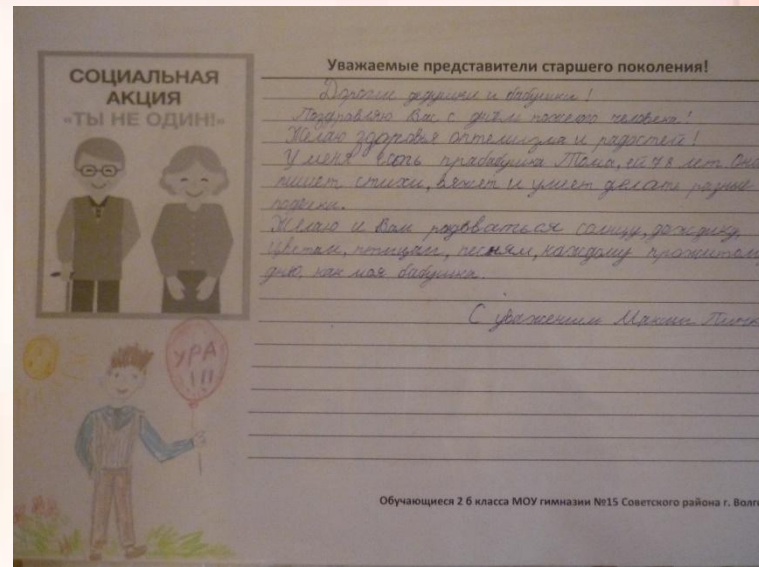 СОЦИАЛЬНАЯ
АКЦИЯ
«ТЫ НЕ ОДИН!»
Уважаемые представители старшего поколения!
Дорогие дедушки и бабушки!
Поздравляю Вас с днём пожелого человека!
Желаю здоровья оптемизма и радостей!
У меня есть прабабушка Тома, ей 78 лет. Она
пишет стихи, вяжет и умеет делать разные
поделки.
Желаю и Вам радоваться солнцу, дождику,
цветам, птицам, песням, каждому прожитому
дню, как моя бабушка.
С уважением Максим
УРА
!!!
Обучающиеся 2 б класса МОУ гимназии №15 Советского района г. Волг